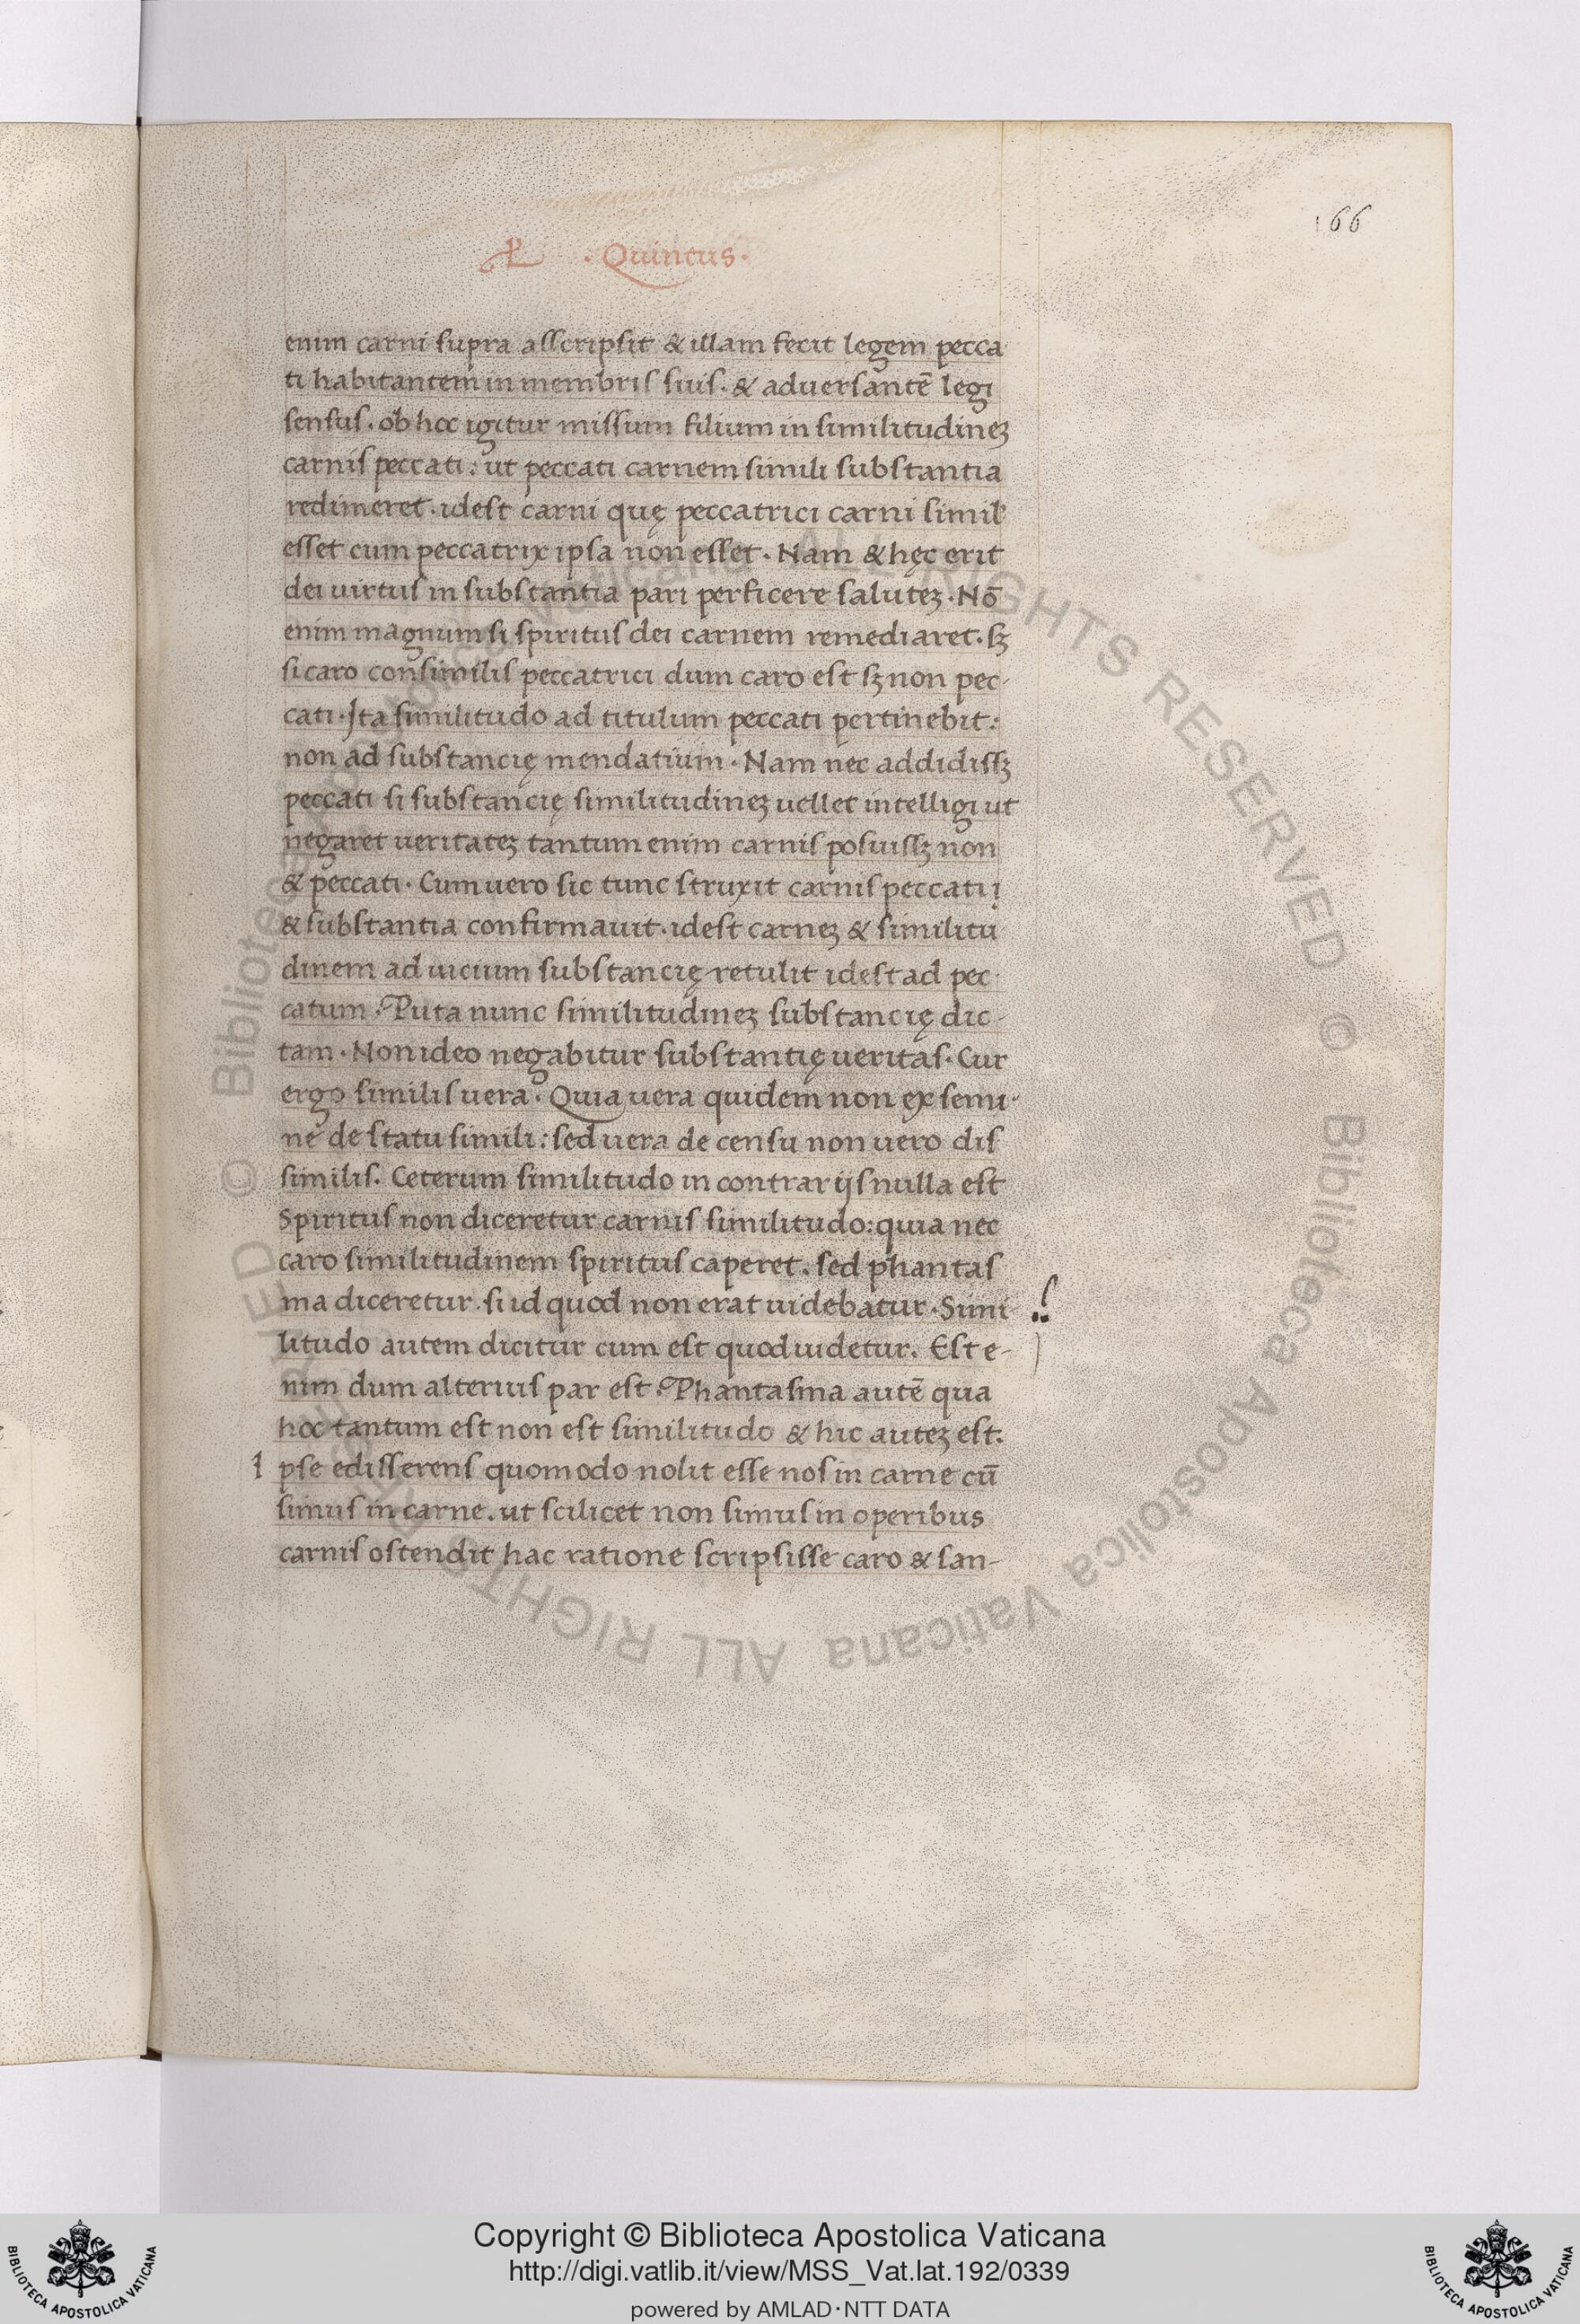 166
·Quintus·
enim carni supra asscripsit & illam fecit legem pecca
ti habitantem in membris suis. & adversantē legi
sensus. ob hoc igitur missum filium in similitudineꝫ
carnis peccati: ut peccati carnem simili substantia
redimeret. idest carni quę peccatrici carni simil'
esset cum peccatrix ipsa non esset. Nam & hęc erit
dei virtus in substantia pari perficere saluteꝫ. Nō
enim magnum si spiritus dei carnem remediaret. sꝫ
si caro consimilis peccatrici dum caro est sꝫ non pec-
cati. Ita similitudo ad titulum peccati pertinebit:
non ad substancię mendatium. Nam nec addidissꝫ
peccati si substancię similitudineꝫ vellet intelligi ut
negaret veritateꝫ tantum enim carnis posuissꝫ non
& peccati. Cum vero sic tunc struxit carnis peccati;
& substantia confirmavit. idest carneꝫ & similitu
dinem ad vicium substancię retulit idest ad pec-
catum. Puta nunc similitudineꝫ substancię dic-
tam. Non ideo negabitur substantię veritas. Cur
ergo similis vera. Quia vera quidem non ex semi-
ne de statu simili: sed vera de censu non vero dis
similis. Ceterum similitudo in contrarijs nulla est
Spiritus non diceretur carnis similitudo: quia nec
caro similitudinem spiritus caperet. sed phantas
ma diceretur. si id quod non erat videbatur. Simi
litudo autem dicitur cum est quod videtur. Est e-
nim dum alterius par est. Phantasma autē qua
hoc tantum est non est similitudo & hic auteꝫ est.
I pse edisserens quomodo nolit esse nos in carne cū
simus in carne. ut scilicet non simus in operibus
carnis ostendit hac ratione scripsisse caro & san-
© Biblioteca Apostolica Vaticana ALL RIGHTS RESERVED © Biblioteca Apostolica Vaticana ALL RIGHTS RESERVED
BIBLIOTECA APOSTOLICA VATICANA
Copyright © Biblioteca Apostolica Vaticana
http://digi.vatlib.it/view/MSS_Vat.lat.192/0339
powered by AMLAD·NTT DATA
BIBLIOTECA APOSTOLICA VATICANA